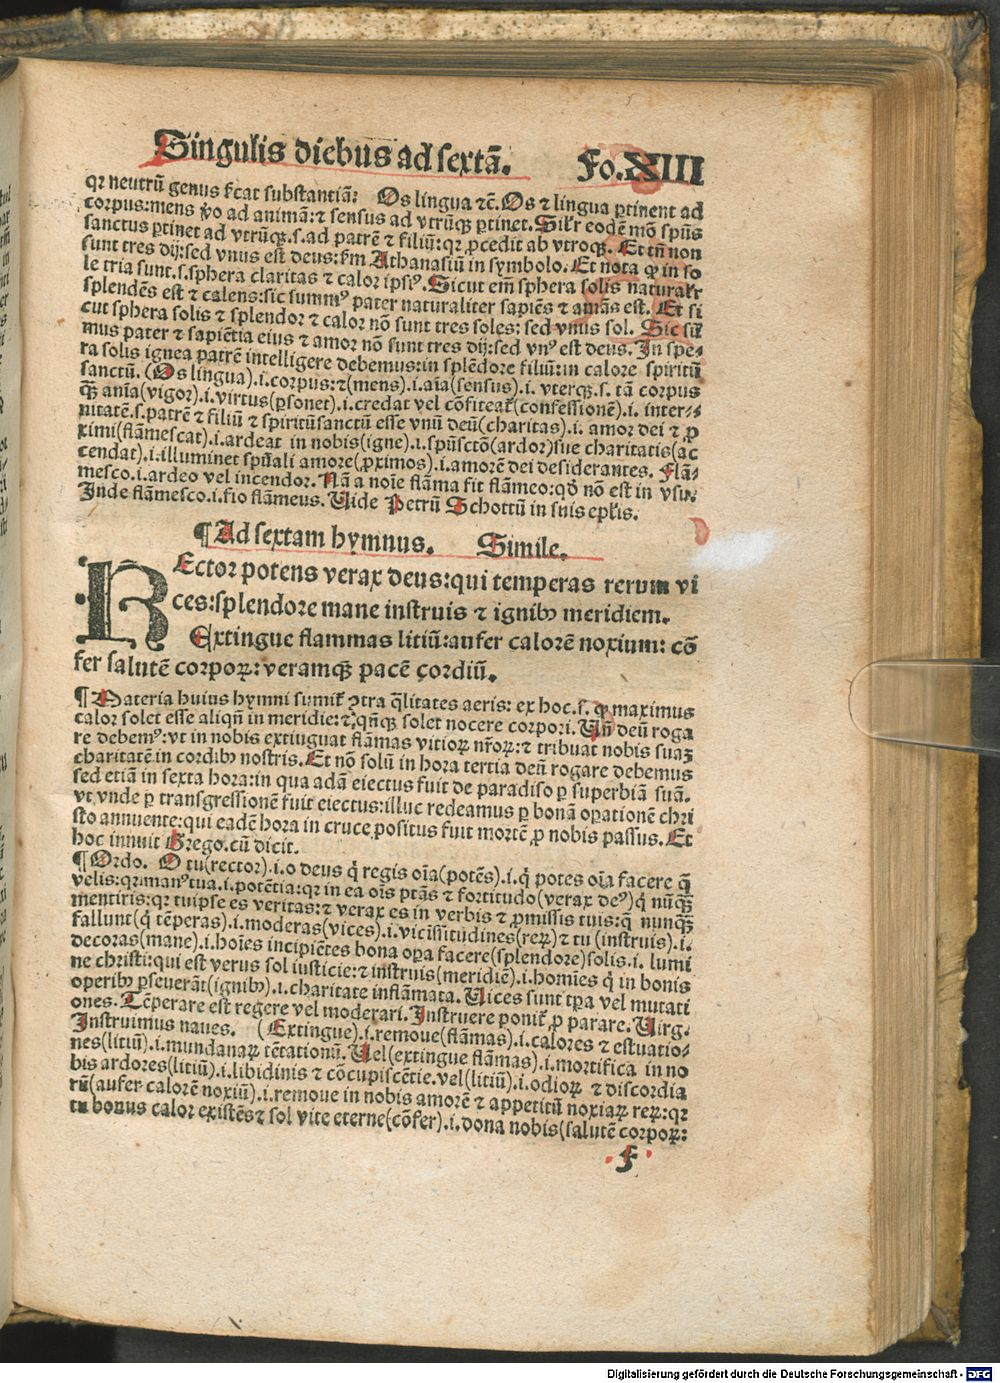 Singulis diebus ad sextā. Fo.XIII
qꝛ neutrū genus ſcat substantiā: Os lingua ⁊c̄. Os ⁊ lingua ꝑtinent ad
corpus:mens ꝟo ad animā:⁊ sensus ad vtrūqꝫ ꝑtinet. Silr̄ eodē mō spūs
sanctus ꝑtinet ad vtrūqꝫ.s.ad patrē ⁊ filiū:qꝛ ꝓcedit ab vtroqꝫ. Et tn̄ non
sunt tres dij:sed vnus est deus:ſm Athanasiū in symbolo. Et nota ꝙ in so
le tria sunt.s.sphera claritas ⁊ calor ipsiꝰ. Sicut em̄ sphera solis naturalr̄
splendēs est ⁊ calens:sic summꝰ pater naturaliter sapiēs ⁊ amās est. Et si
cut sphera solis ⁊ splendor ⁊ calor nō sunt tres soles: sed vnus sol. Sic sūm
mus pater ⁊ sapiētia eius ⁊ amor nō sunt tres dij:sed vnꝰ est deus. In spe⸗
ra solis ignea patrē intelligere debemus:in splēdore filiū:in calore spiritū
sanctū. (Os lingua).i.corpus:⁊(mens).i.aīa(sensus).i. vterqꝫ.s. tā corpus
qꝫ anīa(vigor).i.virtus(ꝑsonet).i.credat vel cōfiteat᷑(confessionē).i. inter⸗
nitatē.s.patrē ⁊ filiū ⁊ spiritūsanctū esse vnū deū(charitas).i. amor dei ⁊ ꝓ
ximi(flāmescat).i.ardeat in nobis(igne).i.spūsctō(ardor)sue charitatis(ac
cendat).i.illuminet spūali amore(ꝓximos).i.amorē dei desiderantes. Flā⸗
mesco.i.ardeo vel incendor. Nā a noīe flāma fit flāmeo:qd̄ nō est in vsu.
Inde flāmesco.i.fio flāmeus. Uide Petrū Schottū in suis epl̄is.
¶Ad sextam hymnus. Simile.
REctor potens verax deus:qui temperas rerum vi
ces:splendore mane instruis ⁊ ignibꝰ meridiem.
Extingue flammas litiū:aufer calorē noxium: cō
fer salutē corporꝝ: veramqꝫ pacē cordiū.
¶Materia huius hymni sumit᷑ ꝯtra q̄litates aeris: ex hoc.s. ꝙ maximus
calor solet esse aliqn̄ in meridie:⁊ qn̄qꝫ solet nocere corpori. Un̄ deū roga
re debemꝰ:vt in nobis extinguat flāmas vitiorꝝ nr̄orꝝ:⁊ tribuat nobis suaꝫ
charitatē in cordibꝰ nostris. Et nō solū in hora tertia deū rogare debemus
sed etiā in sexta hora:in qua adā eiectus fuit de paradiso ꝑ superbiā suā.
vt vnde ꝑ transgressionē fuit eiectus:illuc redeamus ꝑ bonā oꝑationē chri
sto annuente:qui eadē hora in cruce positus fuit mortē ꝓ nobis passus. Et
hoc innuit Grego.cū dicit.
¶Ordo. O tu(rector).i.o deus q̇ regis oīa(potēs).i.q̇ potes oīa facere q̄
velis:qꝛ manꝰ tua.i.potētia:qꝛ in ea oīs ptās ⁊ fortitudo(verax deꝰ)q̇ nūqꝫ
mentiris:qꝛ tuipse es veritas:⁊ verax es in verbis ⁊ ꝓmissis tuis:q̇ nunqꝫ
fallunt(q̇ tēperas).i.moderas(vices).i.vicissitudines(rerꝝ)⁊ tu (instruis).i.
decoras(mane).i.hoīes incipiētes bona oꝑa facere(splendore)solis.i. lumi
ne christi:qui est verus sol iusticie:⁊ instruis(meridiē).i.homīes q̇ in bonis
operibꝰ ꝑseuerāt(ignibꝰ).i.charitate inflāmata. Uices sunt tꝑa vel mutati
ones. Tēperare est regere vel moderari. Instruere ponit᷑ ꝓ parare. Uirg.
Instruimus naues. (Extingue).i.remoue(flāmas).i.calores ⁊ estuatio⸗
nes(litiū).i.mundanarꝝ tētationū. Uel(extingue flāmas).i.mortifica in no
bis ardores(litiū).i.libidinis ⁊ cōcupiscētie.vel(litiū).i.odiorꝝ ⁊ discordia
rū(aufer calorē noxiū).i.remoue in nobis amorē ⁊ appetitū noxiarꝝ rerꝝ:qꝛ
tu bonus calor existēs⁊ sol vite eterne(cōfer).i.dona nobis(salutē corporꝝ:
F
Digitalisierung gefördert durch die Deutsche Forschungsgemeinschaft - DFG